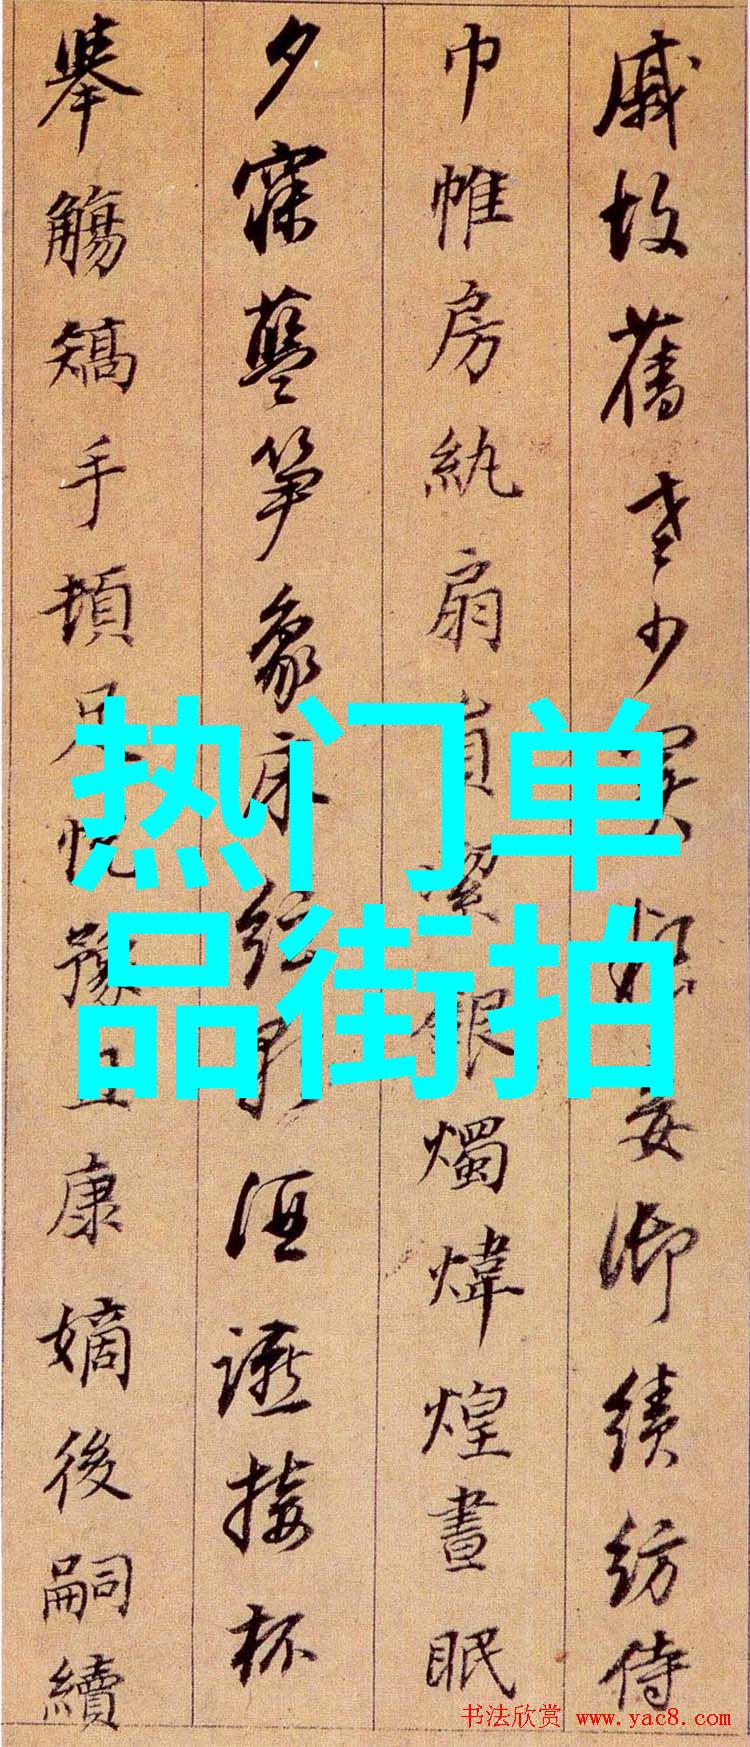 戚故舊老少異粮妾御績紡侍
巾帷房紈扇圓潔銀燭煒煌晝眠
夕寐藍笋象床絃歌酒讌接杯
舉觴矯手頓足悅豫且康嫡後嗣續
热门单
品街拍
书法欣赏 www.yac8.com